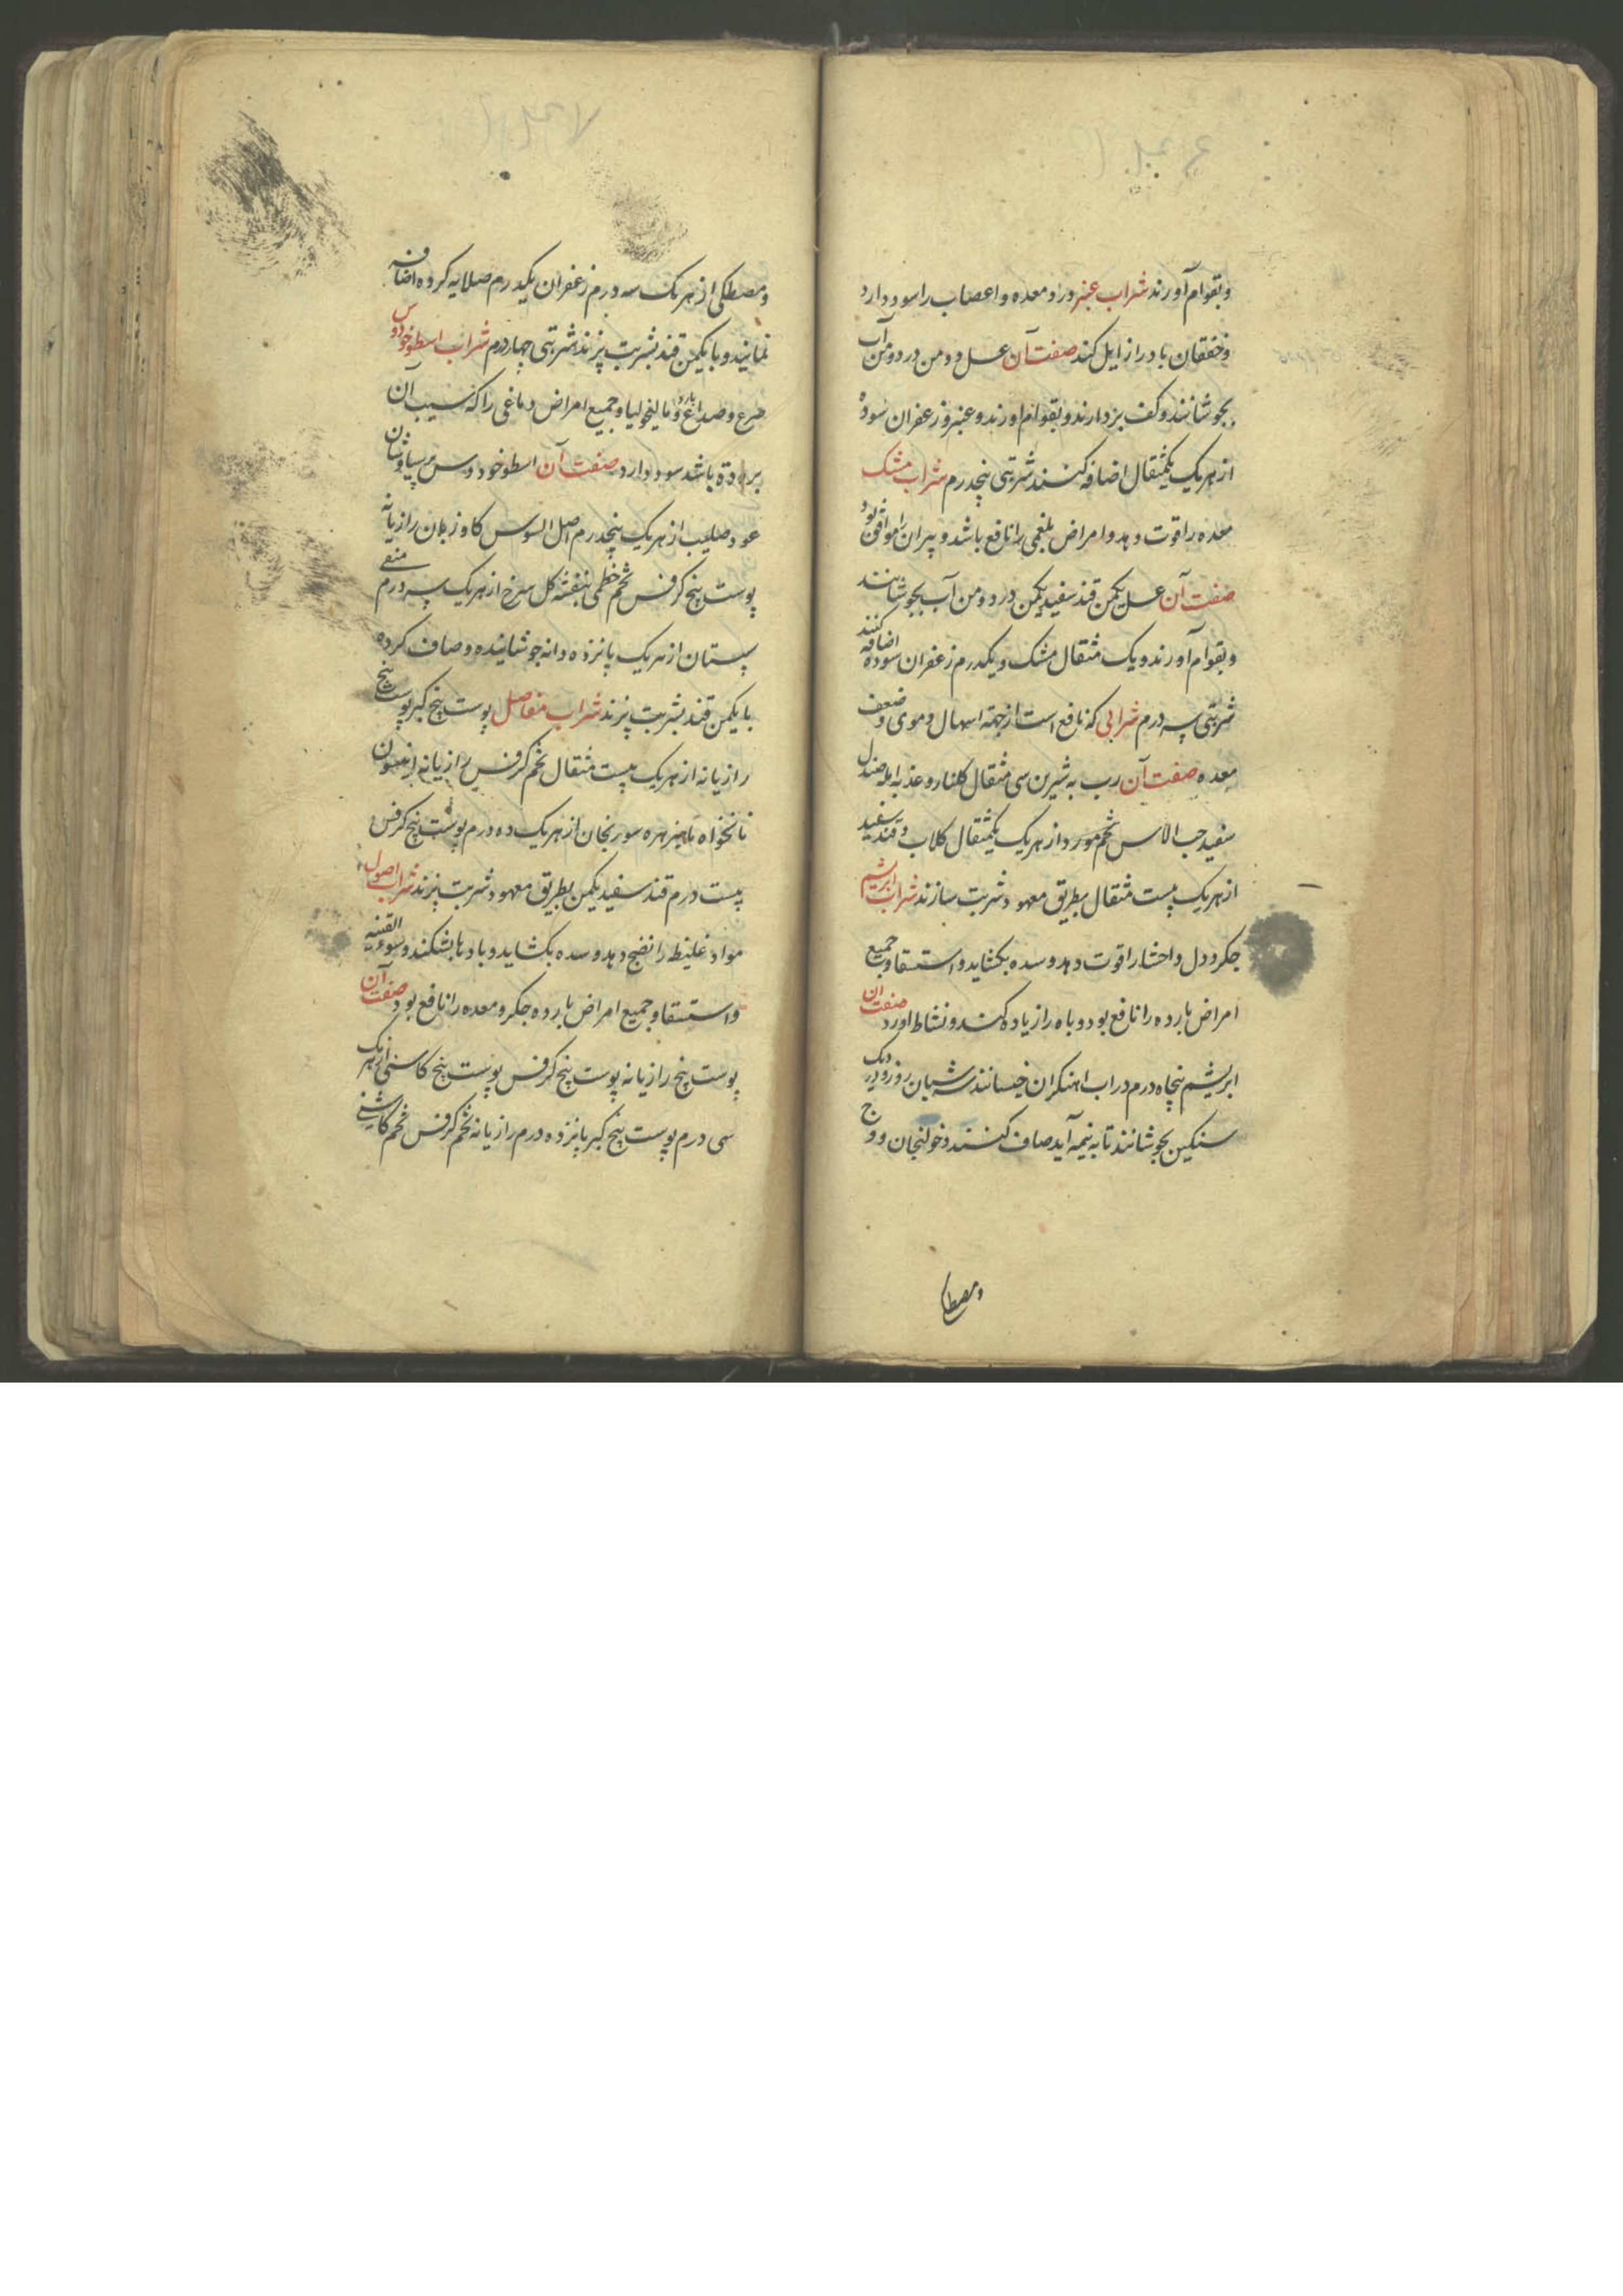 وبقوام آورند شراب عنبر درد معده و اعصاب را سود دارد
وخفقان بارد را زایل کند صفت آن عسل دو من در دو من آب
بجوشانند و کف بردارند و بقوام اورند و عنبر و زعفران سوده
از هر یک یکمثقال اضافه کنند شربتی پنجدرم شراب مشک
معده را قوت دهد و امراض بلغمی را نافع باشد و پیران را موافق بود
صفت آن عسل یکمن قند سفید یکمن در دو من آب بجوشانند
وبقوام آورند و یک مثقال مشک و یکدرم زعفران سوده اضافه کنند
شربتی سه درم شرابی که نافع است از جهة اسهال دموی و ضعف
معده صفت آن رب به شیرین سی مثقال کلنار و عذبه امله صندل
سفید حب الاس تخم مورد از هر یک یکمثقال کلاب و قند سفید
از هر یک بیست مثقال بطریق معهود شربت سازند شراب ابریشم
جکر و دل و احشا را قوت دهد و سده بکشاید و استسقا و جمیع
امراض بارده را نافع بود و باه را زیاده کند و نشاط اورد صفت ان
ابریشم پنجاه درم در اب اهنکران خیسانند سه شبان روز و در دیک
سنکین بجوشانند تا به نیمه آید صاف کنند و خولنجان و وج
ومصطکی
ومصطکی از هر یک سه درم زعفران یکدرم صلایه کرده اضافه
نمایند و با یکمن قند بشربت پزند شربتی چهار درم شراب اسطوخودوس
صرع و صداع بارد و مالیخولیا و جمیع امراض دماغی را که سبب آن
برودة باشد سود دارد صفت آن اسطوخودوس پرسیاوشان
عود صلیب از هر یک پنجدرم اصل السوس کاوزبان رازیانه
پوست بیخ کرفس تخم خطمی بنفشه کل سرخ از هر یک سه درم منقی
سپستان از هر یک پانزده دانه جوشانیده و صاف کرده
با یکمن قند بشربت پزند شراب مفاصل پوست بیخ کبر پوست بیخ
رازیانه از هر یک بیست مثقال تخم کرفس رازیانه انیسون
نانخواه ماهیزهره سورنجان از هر یک ده درم پوست بیخ کرفس
بیست درم قند سفید یکمن بطریق معهود شربت پزند شراب اصول
مواد غلیظ را نضج دهد و سده بکشاید و بادها بشکند و سوء القنیه
واستسقا و جمیع امراض بارده جکر و معده را نافع بود صفت آن
پوست بیخ رازیانه پوست بیخ کرفس پوست بیخ کاسنی از هر یک
سی درم پوست بیخ کبر پانزده درم رازیانه تخم کرفس تخم کاسنی